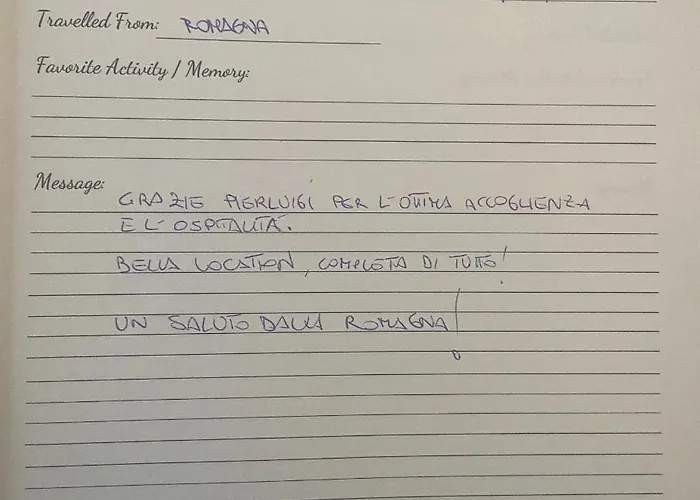 Travelled From: ROMAGNA
Favorite Activity / Memory:
Message:
GRAZIE PIERLUIGI PER L'OTTIMA ACCOGLIENZA
E L'OSPITALITÀ.
BELLA LOCATION, COMPLETA DI TUTTO!
UN SALUTO DALLA ROMAGNA!